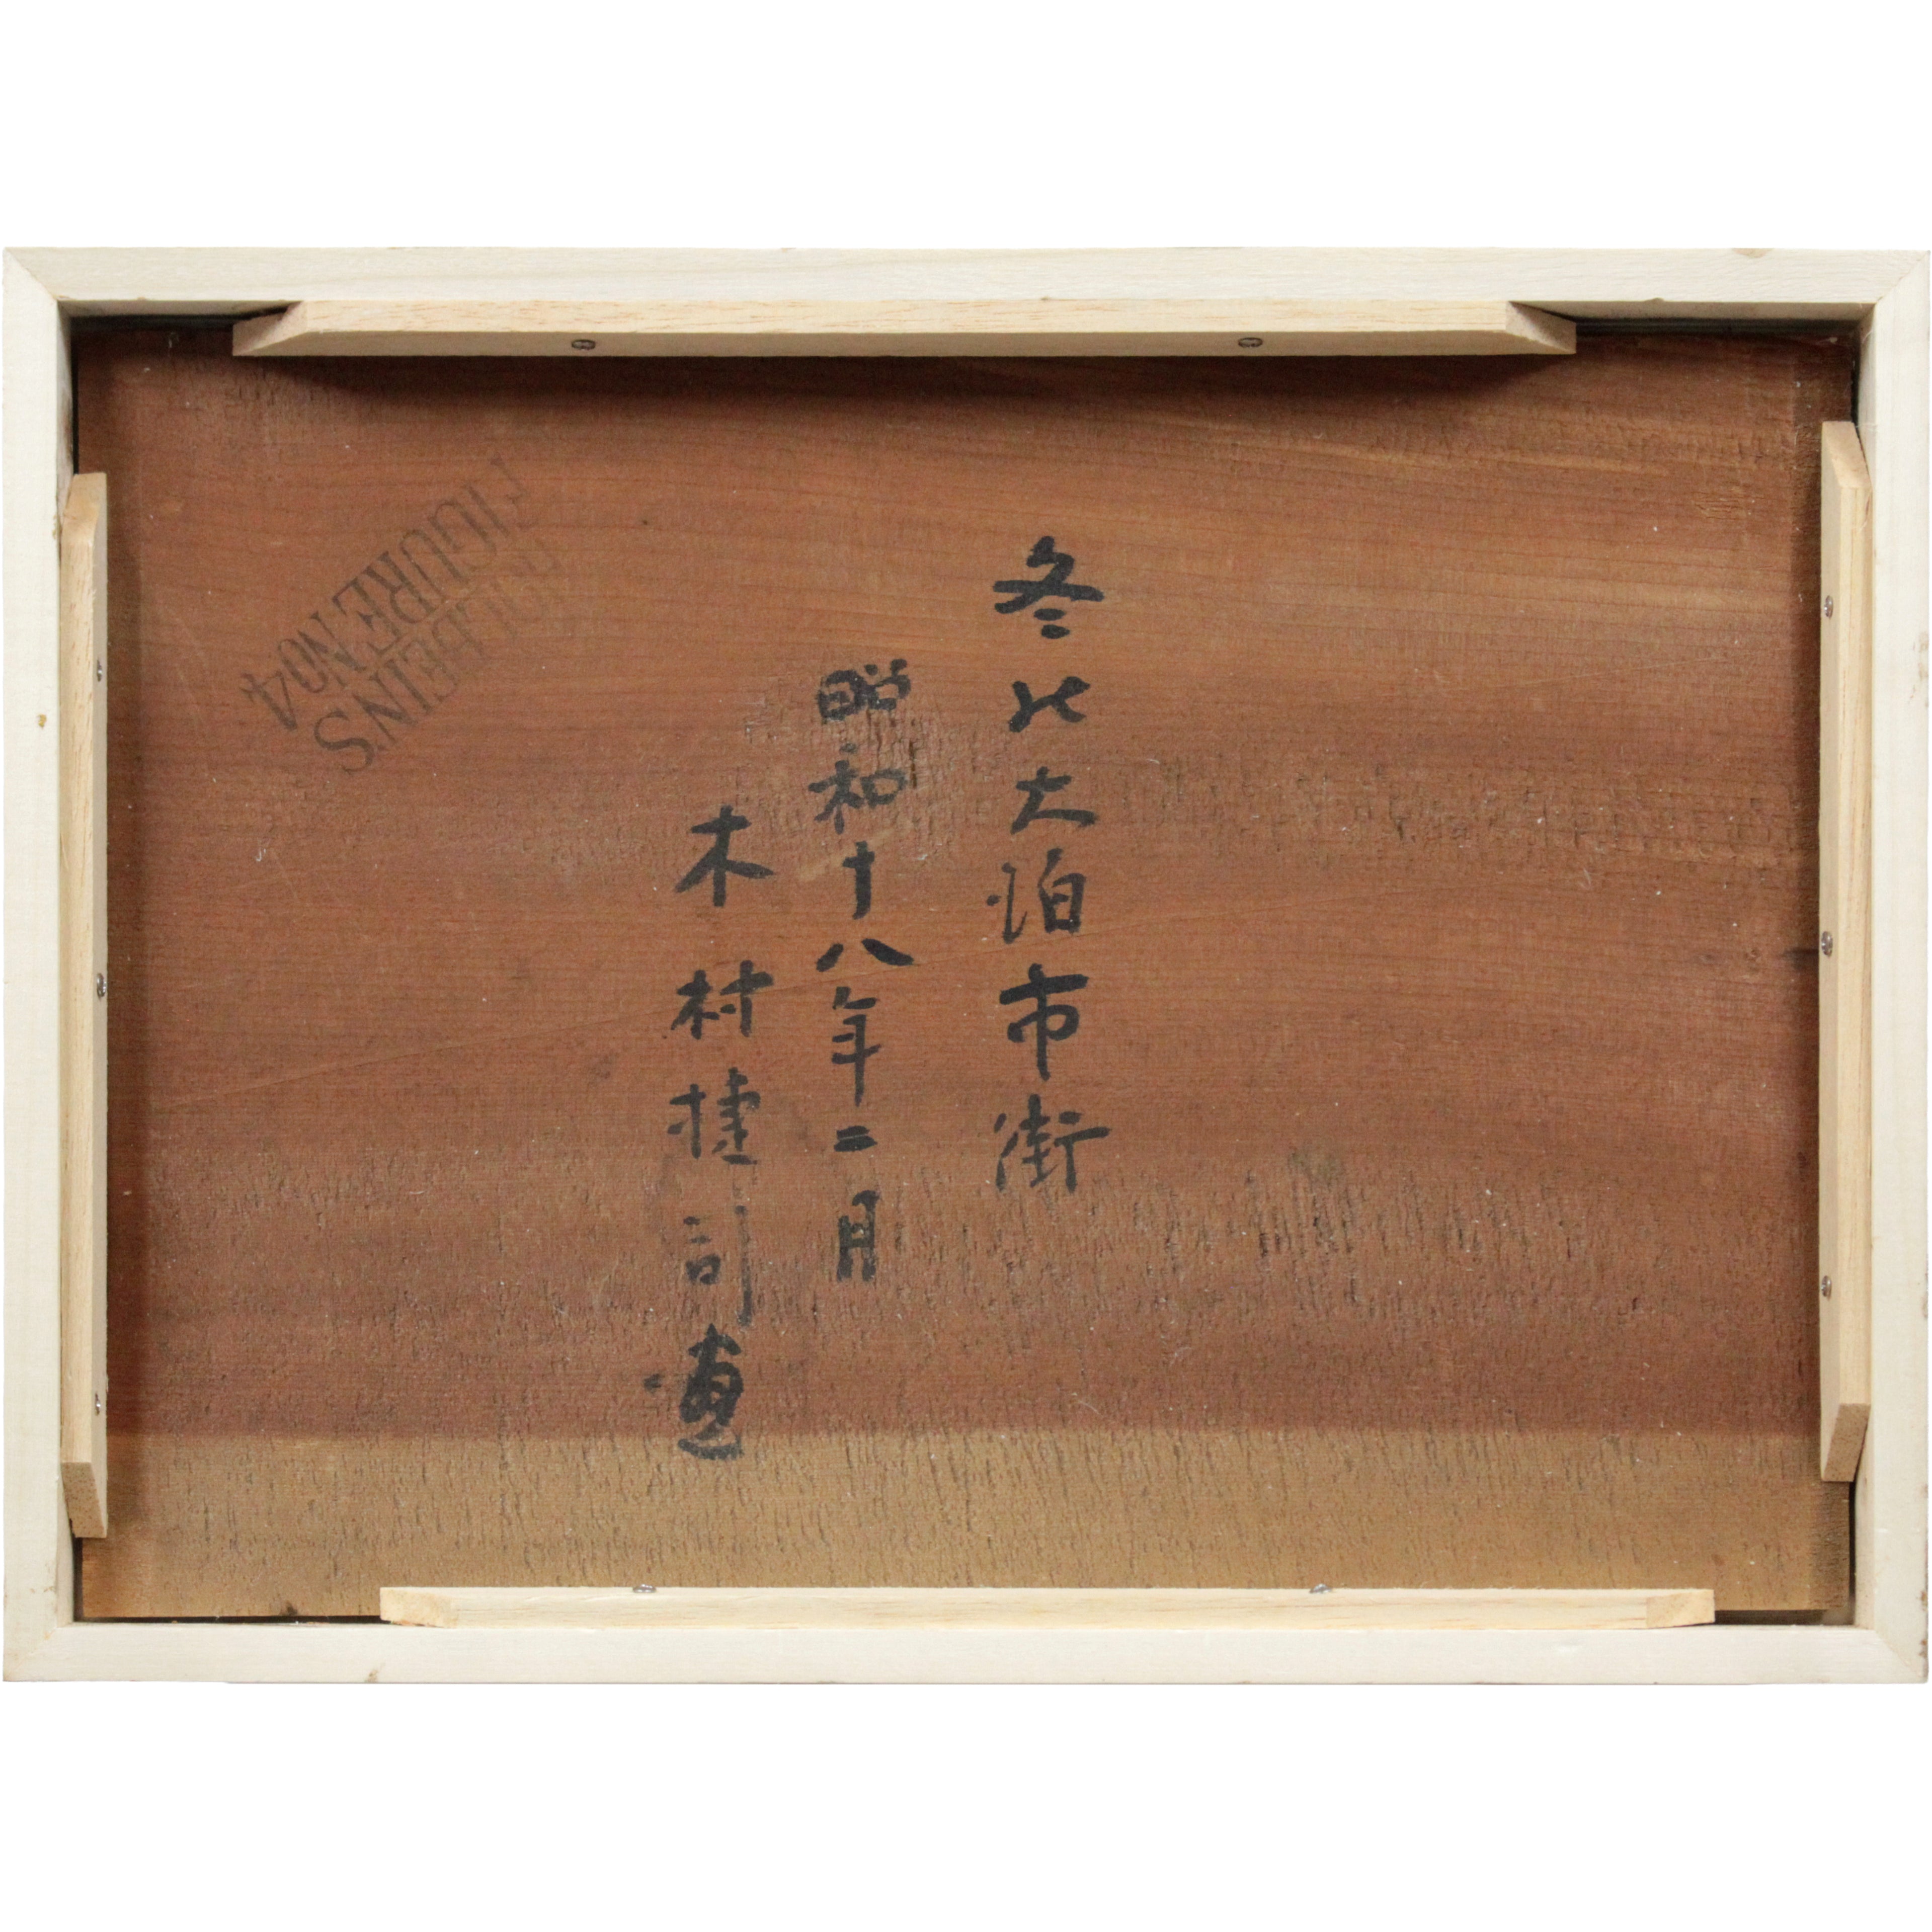 冬の大泊市街
昭和十八年二月
木村捷司画
HOLBEIN'S
FIGURE NO4